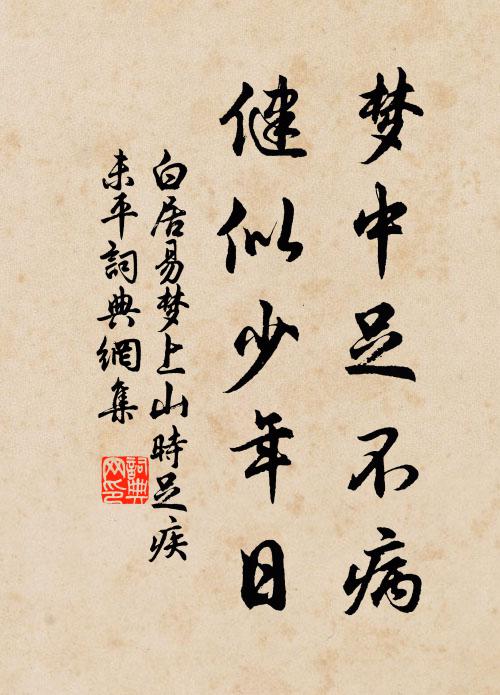 梦中足不病
健似少年日
白居易梦上山時足疾
未平詞典網集
詞典网印